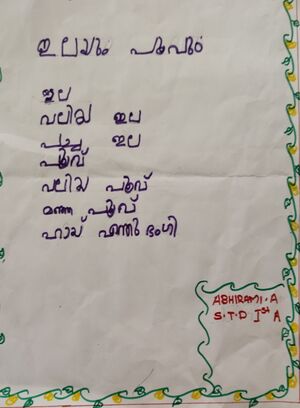 ഇലയും പൂവും
ഇല
വലിയ ഇല
പച്ച ഇല
പൂവ്
വലിയ പൂവ്
മഞ്ഞ പൂവ്
ഹായ് എന്ത് ഭംഗി
ABHIRAMI.A
S.T.D Ist A